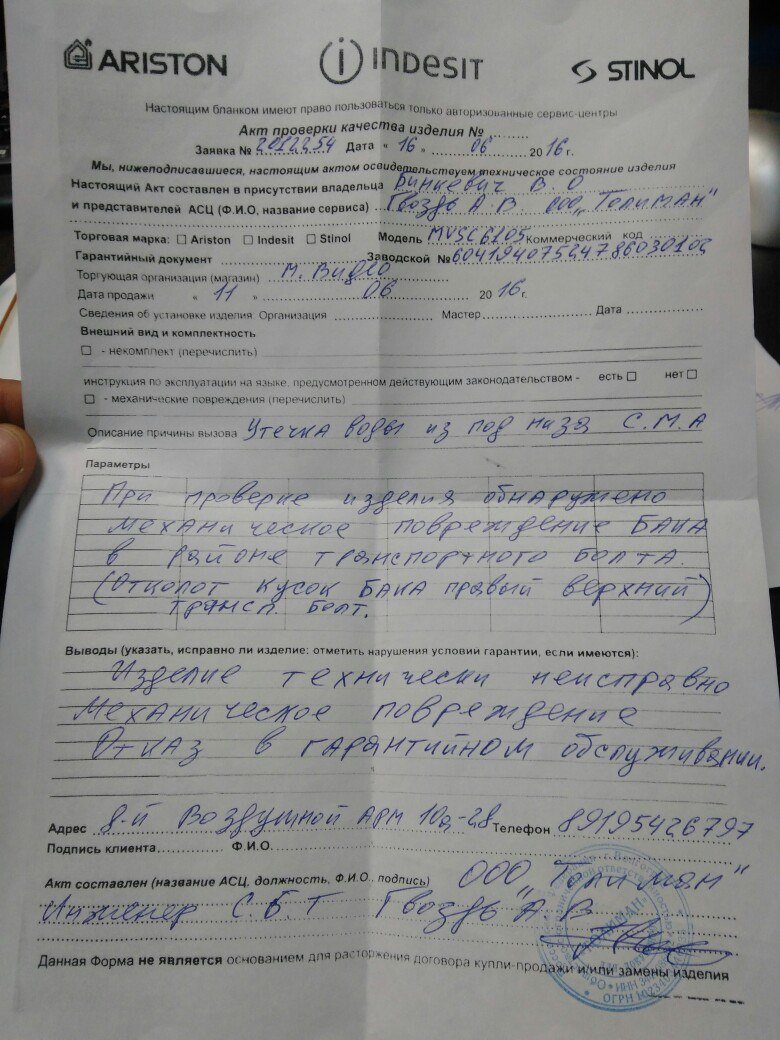 ARISTON indesit STINOL
Настоящим бланком имеют право пользоваться только авторизованные сервис-центры
Акт проверки качества изделия № ........
Заявка № Дата « 16 » 06 2016 г.
Мы, нижеподписавшиеся, настоящим актом освидетельствуем техническое состояние изделия
Настоящий Акт составлен в присутствии владельца Бинкевич В. О
и представителей АСЦ (Ф.И.О, название сервиса) Гвоздь А В ООО „Толиман"
Торговая марка: □ Ariston □ Indesit □ Stinol Модель MVSC6105 Коммерческий код
Гарантийный документ Заводской №
Торгующая организация (магазин) М. Видео
Дата продажи « 11 » 06 2016 г.
Сведения об установке изделия Организация Мастер Дата
Внешний вид и комплектность
□ - некомплект (перечислить)
инструкция по эксплуатации на языке, предусмотренном действующим законодательством - есть □ нет □
□ - механические повреждения (перечислить)
Описание причины вызова Утечка воды из под низа С.М.А
Параметры
При проверке изделия обнаружено
механическое повреждение бака
в районе транспортного болта.
(Отколот кусок бака правый верхний)
трансп. болт.
Выводы (указать, исправно ли изделие: отметить нарушения условий гарантии, если имеются):
Изделие технически неисправно
Механическое повреждение
Отказ в гарантийном обслуживании.
Адрес 8-й Воздушной Арм 10а-28 Телефон 89195426797
Подпись клиента Ф.И.О.
Акт составлен (название АСЦ, должность, Ф.И.О., подпись) ООО „Толиман"
Инженер С.Б.Т Гвоздь А.В
Данная Форма не является основанием для расторжения договора купли-продажи и/или замены изделия